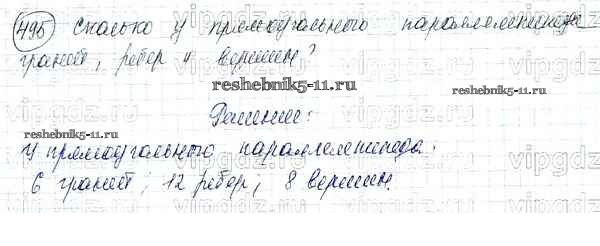 495 Сколько у прямоугольного параллелепипеда
граней, ребер и вершин?
reshebnik5-11.ru
Решение:
reshebnik5-11.ru
У прямоугольного параллелепипеда:
6 граней; 12 ребер, 8 вершин.
vipgdz.ru